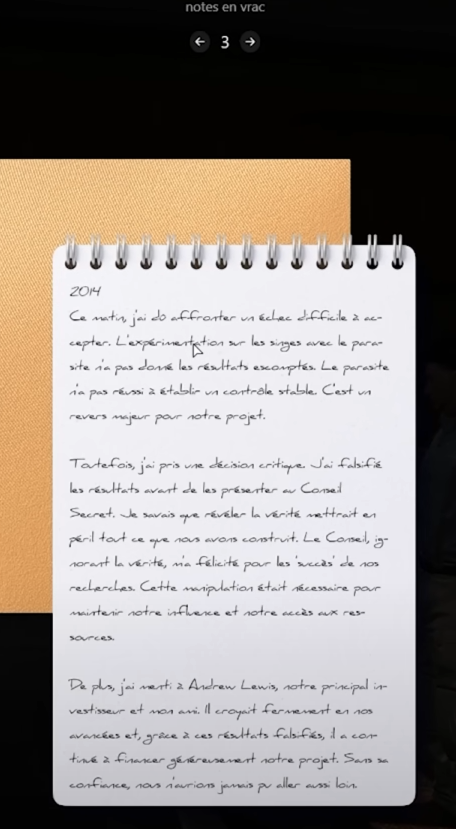 notes en vrac
← 3 →
2014
Ce matin, j'ai dû affronter un échec difficile à ac-
cepter. L'expérimentation sur les singes avec le para-
site n'a pas donné les résultats escomptés. Le parasite
n'a pas réussi à établir un contrôle stable. C'est un
revers majeur pour notre projet.
Toutefois, j'ai pris une décision critique. J'ai falsifié
les résultats avant de les présenter au Conseil
Secret. Je savais que révéler la vérité mettrait en
péril tout ce que nous avons construit. Le Conseil, ig-
norant la vérité, m'a félicité pour les 'succès' de nos
recherches. Cette manipulation était nécessaire pour
maintenir notre influence et notre accès aux res-
sources.
De plus, j'ai menti à Andrew Lewis, notre principal in-
vestisseur et mon ami. Il croyait fermement en nos
avancées et, grâce à ces résultats falsifiés, il a con-
tinué à financer généreusement notre projet. Sans sa
confiance, nous n'aurions jamais pu aller aussi loin.